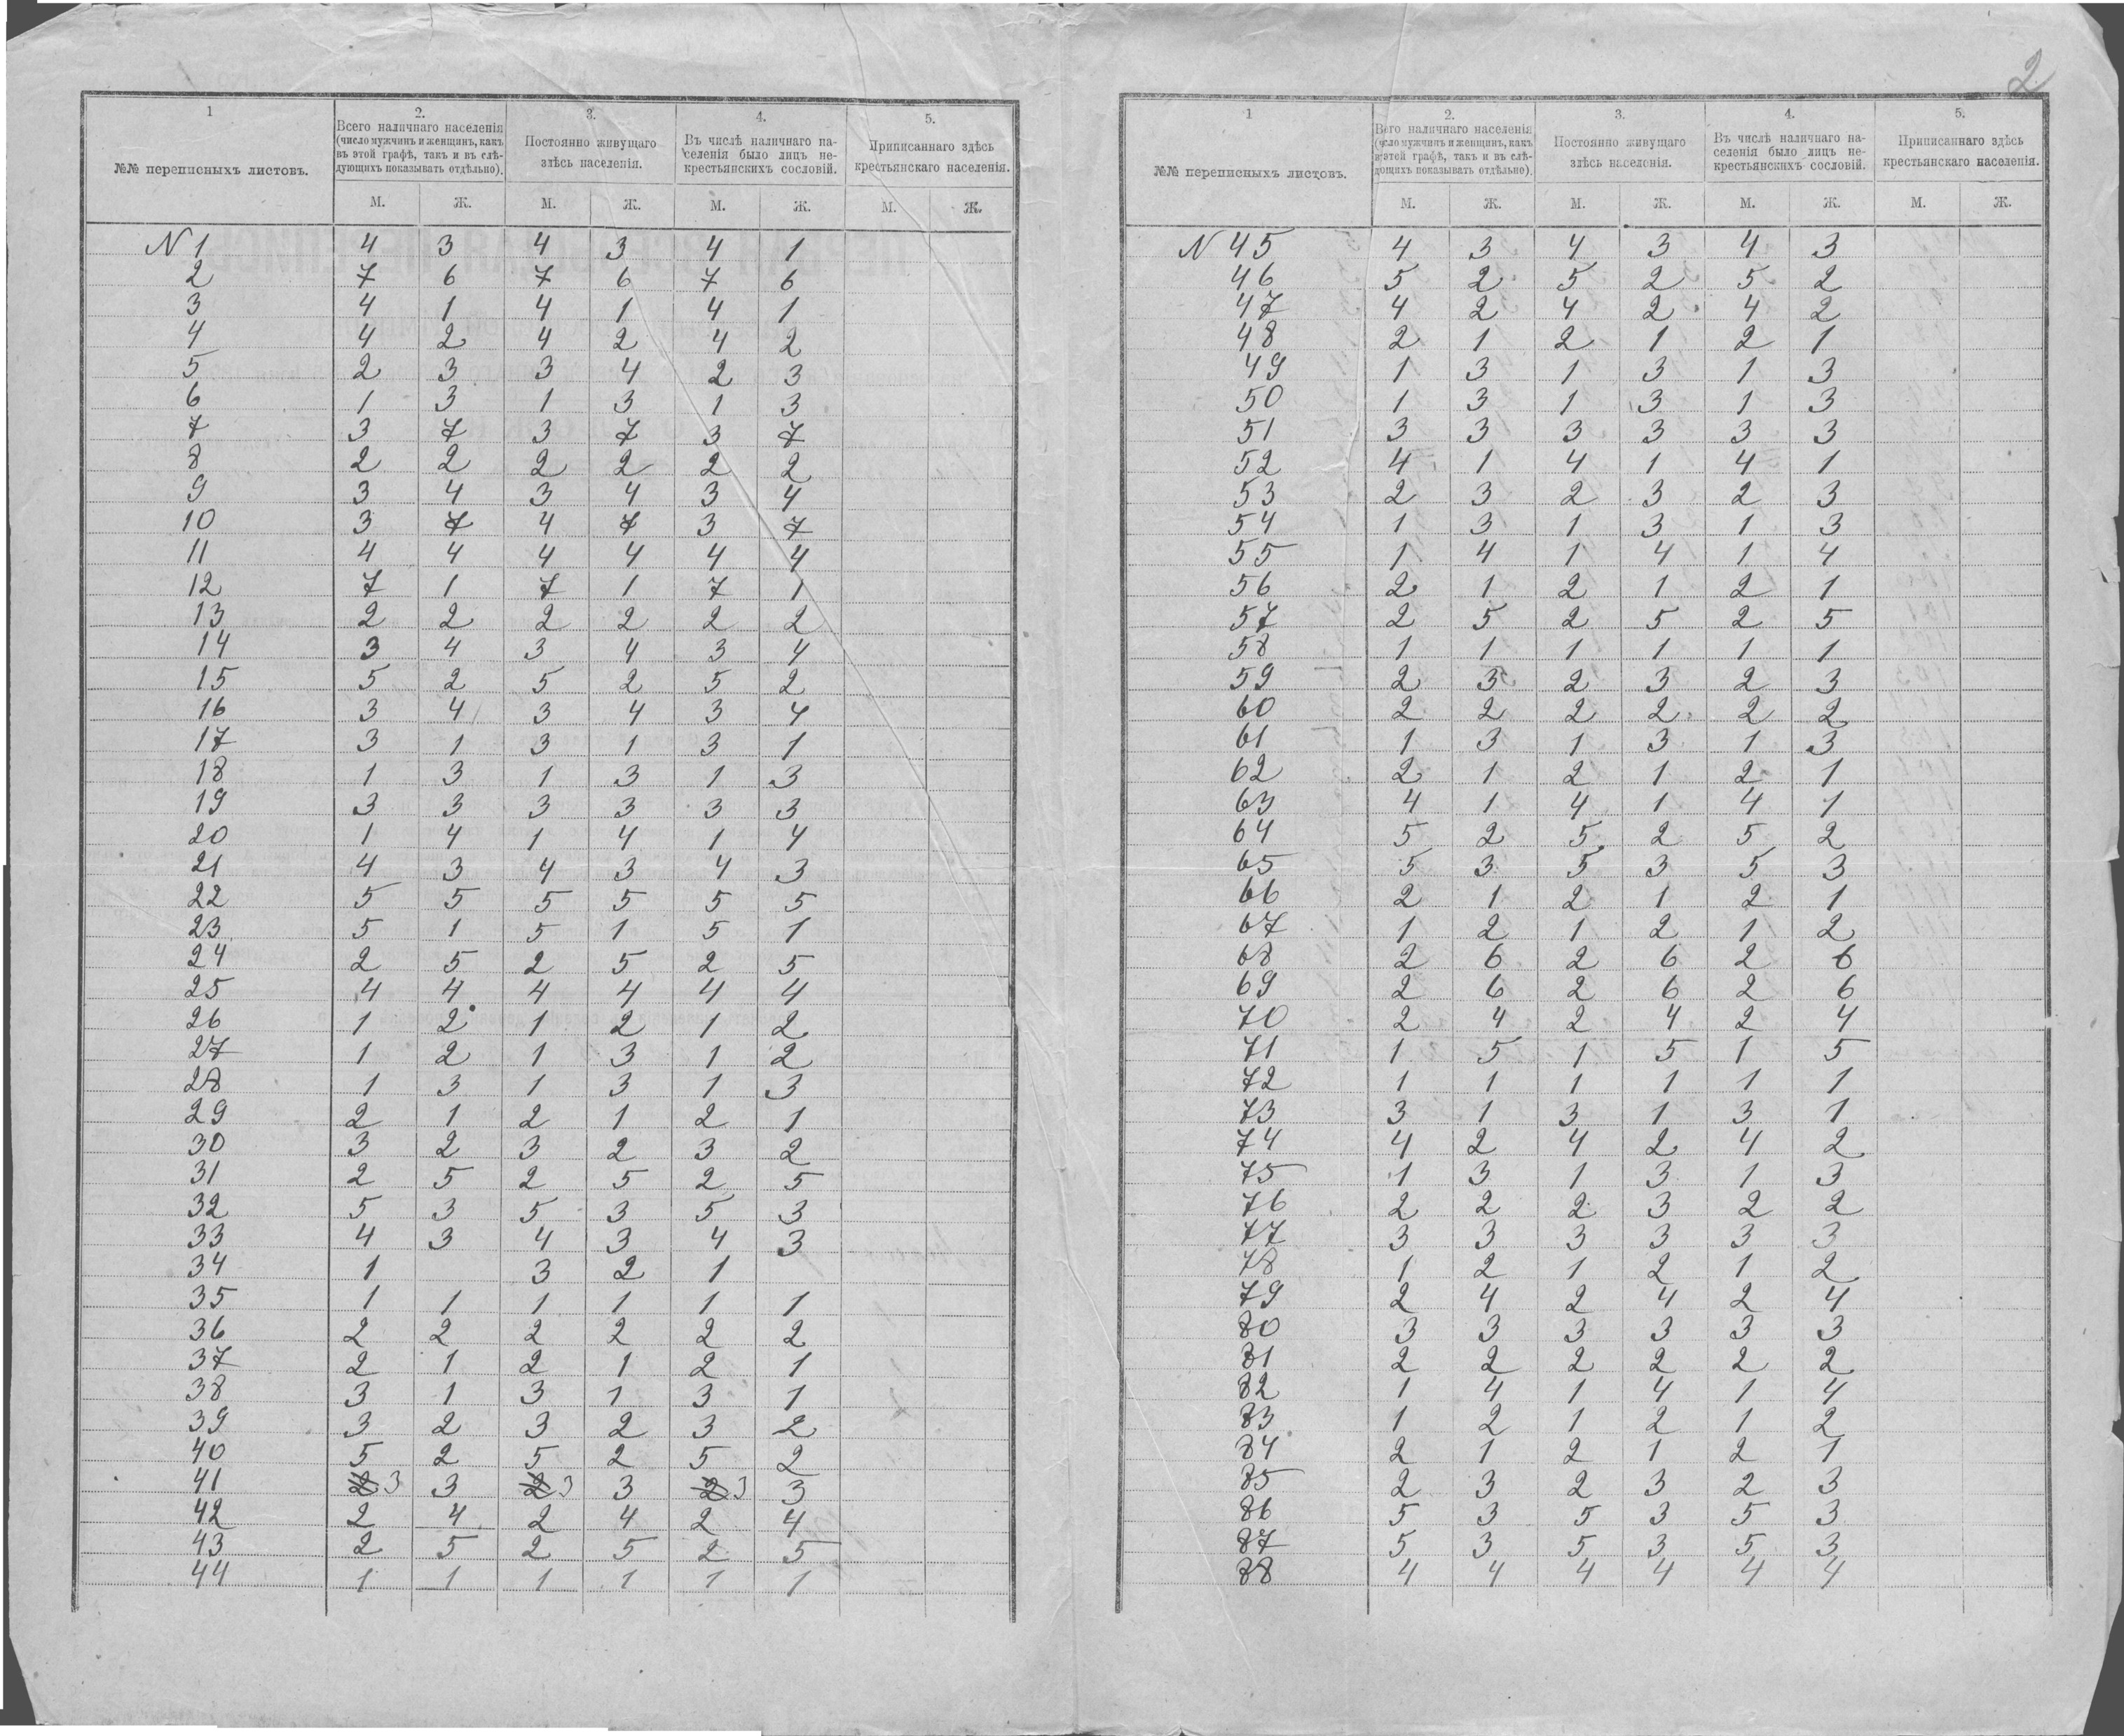 2
1 2. 3. 4. 5.
№№ переписныхъ листовъ. Всего наличнаго населенія (число мужчинъ и женщинъ, какъ въ этой графѣ, такъ и въ слѣдующихъ показывать отдѣльно). Постоянно живущаго здѣсь населенія. Въ числѣ наличнаго населенія было лицъ некрестьянскихъ сословій. Приписаннаго здѣсь крестьянскаго населенія.
М. Ж. М. Ж. М. Ж. М. Ж.
N 1 4 3 4 3 4 1
2 7 6 7 6 7 6
3 4 1 4 1 4 1
4 4 2 4 2 4 2
5 2 3 3 4 2 3
6 1 3 1 3 1 3
7 3 7 3 7 3 7
8 2 2 2 2 2 2
9 3 4 3 4 3 4
10 3 7 4 7 3 7
11 4 4 4 4 4 4
12 7 1 7 1 7 1
13 2 2 2 2 2 2
14 3 4 3 4 3 4
15 5 2 5 2 5 2
16 3 4 3 4 3 4
17 3 1 3 1 3 1
18 1 3 1 3 1 3
19 3 3 3 3 3 3
20 1 4 1 4 1 4
21 4 3 4 3 4 3
22 5 5 5 5 5 5
23 5 1 5 1 5 1
24 2 5 2 5 2 5
25 4 4 4 4 4 4
26 1 2 1 2 1 2
27 1 2 1 3 1 2
28 1 3 1 3 1 3
29 2 1 2 1 2 1
30 3 2 3 2 3 2
31 2 5 2 5 2 5
32 5 3 5 3 5 3
33 4 3 4 3 4 3
34 1 3 2 1
35 1 1 1 1 1 1
36 2 2 2 2 2 2
37 2 1 2 1 2 1
38 3 1 3 1 3 1
39 3 2 3 2 3 2
40 5 2 5 2 5 2
41 2 3 3 2 3 3 2 3 3
42 2 4 2 4 2 4
43 2 5 2 5 2 5
44 1 1 1 1 1 1
1 2. 3. 4. 5.
№№ переписныхъ листовъ. Всего наличнаго населенія (число мужчинъ и женщинъ, какъ въ этой графѣ, такъ и въ слѣдующихъ показывать отдѣльно). Постоянно живущаго здѣсь населенія. Въ числѣ наличнаго населенія было лицъ некрестьянскихъ сословій. Приписаннаго здѣсь крестьянскаго населенія.
М. Ж. М. Ж. М. Ж. М. Ж.
N 45 4 3 4 3 4 3
46 5 2 5 2 5 2
47 4 2 4 2 4 2
48 2 1 2 1 2 1
49 1 3 1 3 1 3
50 1 3 1 3 1 3
51 3 3 3 3 3 3
52 4 1 4 1 4 1
53 2 3 2 3 2 3
54 1 3 1 3 1 3
55 1 4 1 4 1 4
56 2 1 2 1 2 1
57 2 5 2 5 2 5
58 1 1 1 1 1 1
59 2 3 2 3 2 3
60 2 2 2 2 2 2
61 1 3 1 3 1 3
62 2 1 2 1 2 1
63 4 1 4 1 4 1
64 5 2 5 2 5 2
65 5 3 5 3 5 3
66 2 1 2 1 2 1
67 1 2 1 2 1 2
68 2 6 2 6 2 6
69 2 6 2 6 2 6
70 2 4 2 4 2 4
71 1 5 1 5 1 5
72 1 1 1 1 1 1
73 3 1 3 1 3 1
74 4 2 4 2 4 2
75 1 3 1 3 1 3
76 2 2 2 3 2 2
77 3 3 3 3 3 3
78 1 2 1 2 1 2
79 2 4 2 4 2 4
80 3 3 3 3 3 3
81 2 2 2 2 2 2
82 1 4 1 4 1 4
83 1 2 1 2 1 2
84 2 1 2 1 2 1
85 2 3 2 3 2 3
86 5 3 5 3 5 3
87 5 3 5 3 5 3
88 4 4 4 4 4 4